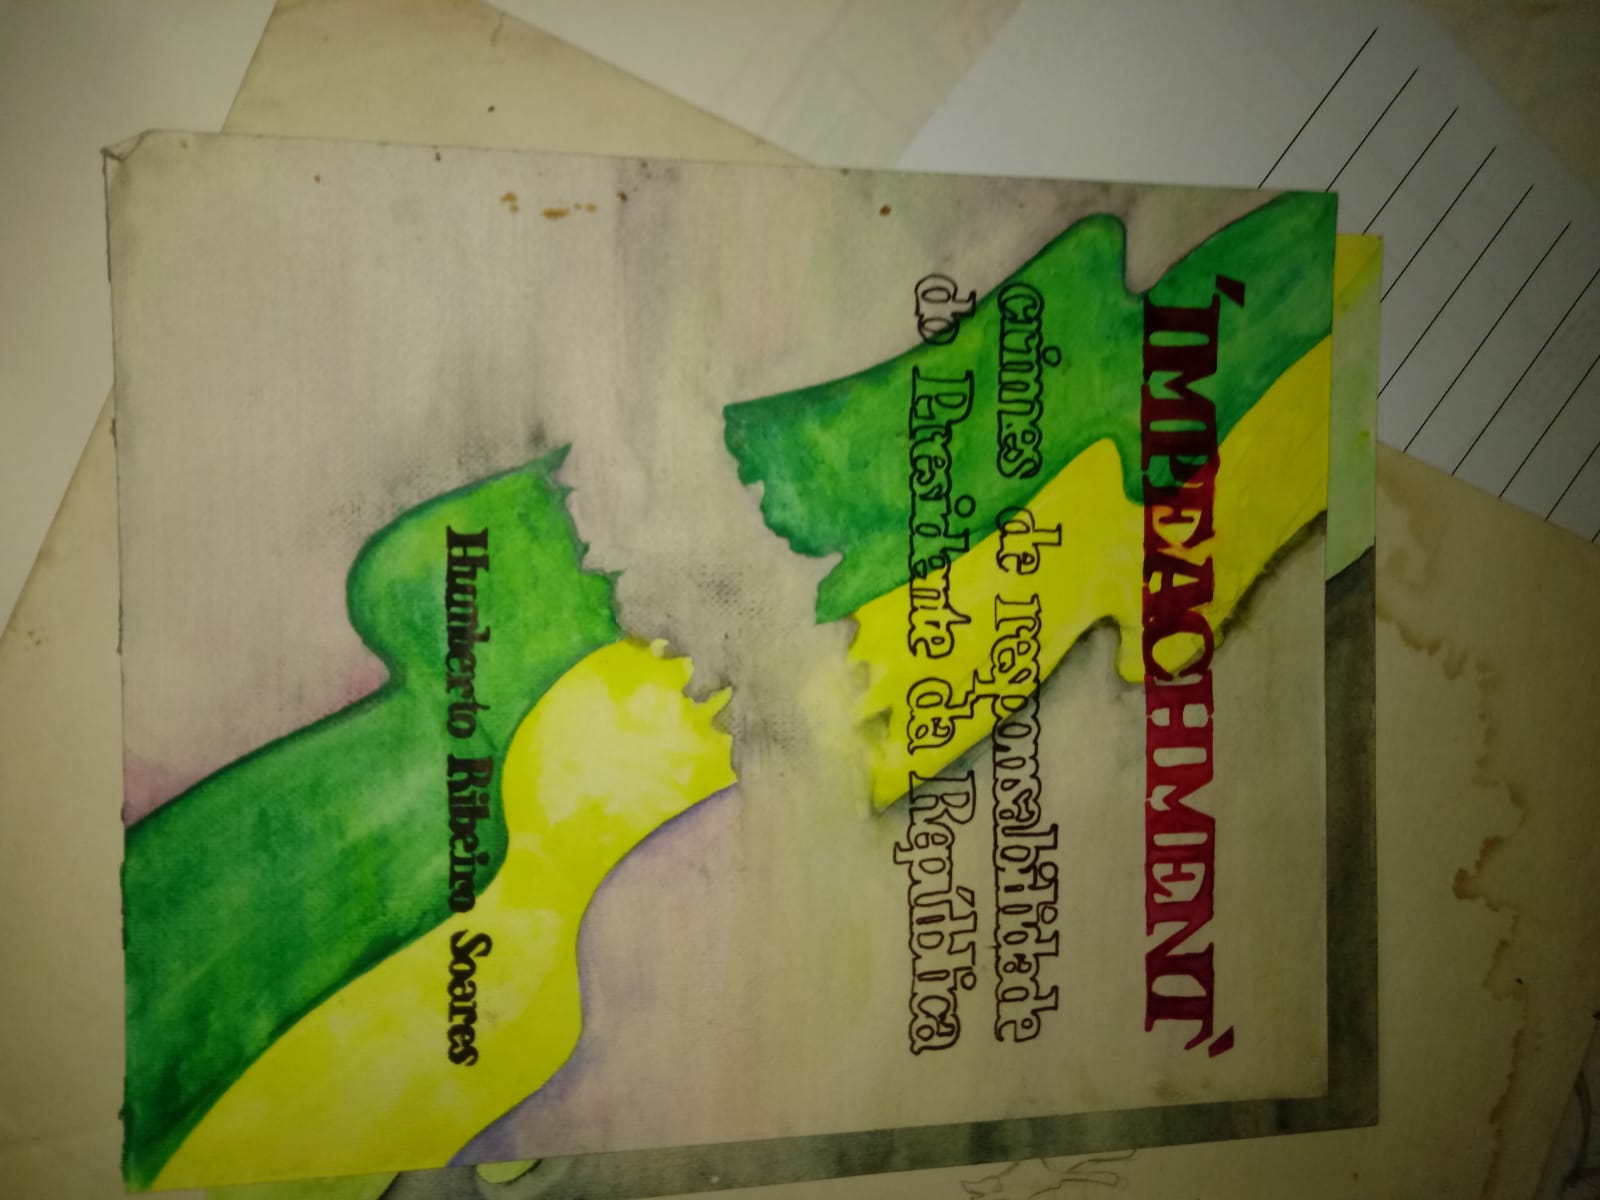 ´IMPEACHMENT`
crimes de responsabilidade
do Presidente da República
Humberto Ribeiro Soares